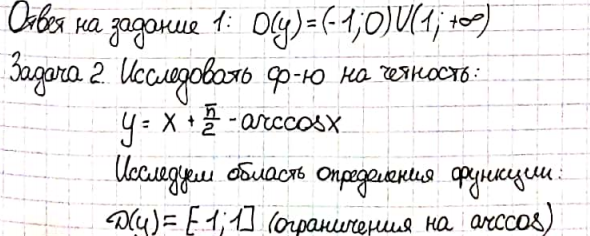 Ответ на задание 1: D(y)=(-1;0)U(1;+∞)
Задача 2. Исследовать ф-ю на чётность:
y = x + π/2 - arccosx
Исследуем область определения функции:
D(y)= [-1;1] (ограничения на arccos)